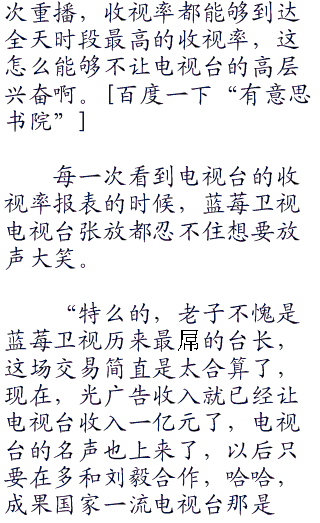 次重播，收视率都能够到达
全天时段最高的收视率，这
怎么能够不让电视台的高层
兴奋啊。[百度一下“有意思
书院”]
每一次看到电视台的收
视率报表的时候，蓝莓卫视
电视台张放都忍不住想要放
声大笑。
“特么的，老子不愧是
蓝莓卫视历来最屌的台长，
这场交易简直是太合算了，
现在，光广告收入就已经让
电视台收入一亿元了，电视
台的名声也上来了，以后只
要在多和刘毅合作，哈哈，
成果国家一流电视台那是